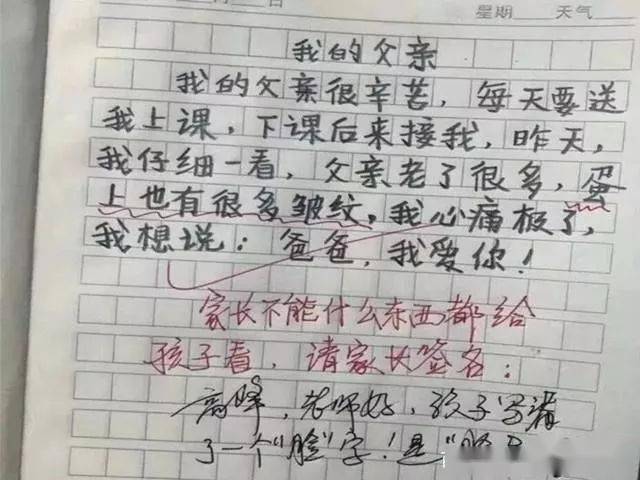 星期 天气
我的父亲
我的父亲很辛苦，每天要送
我上课，下课后来接我，昨天，
我仔细一看，父亲老了很多，蛋
上也有很多皱纹，我心痛极了，
我想说：爸爸，我爱你！
家长不能什么东西都给
孩子看，请家长签名：
高峰，老师好，孩子写错
了一个"脸"字！是"